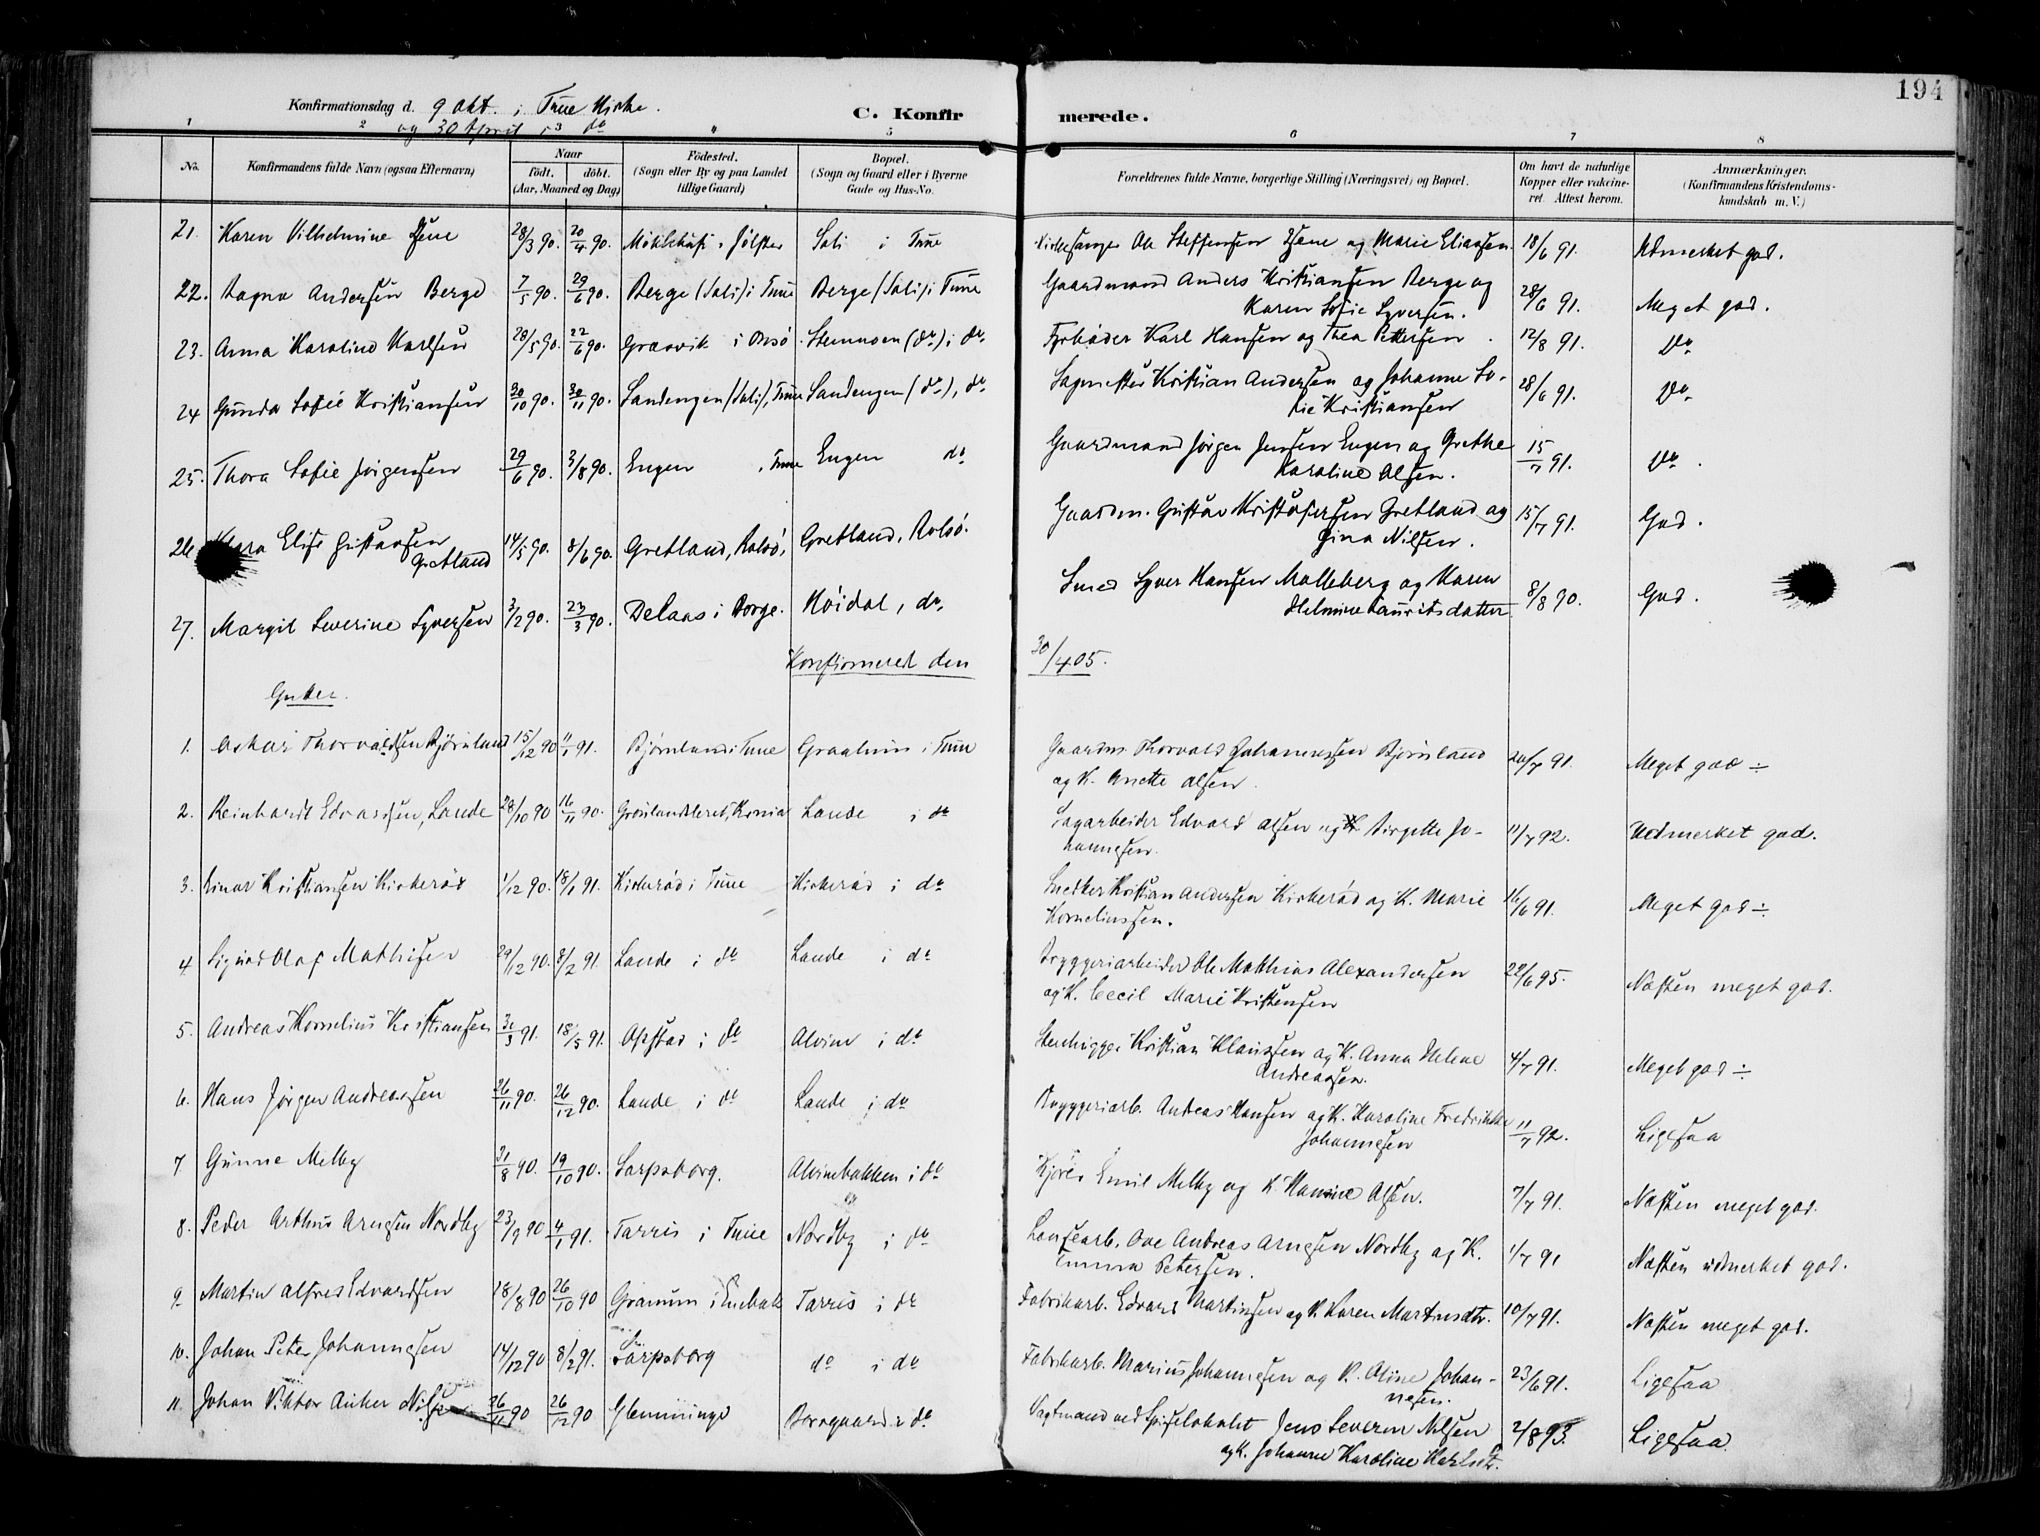 194
Konfirmationsdag d. 9 Okt. i Tune Kirke.
og 30 April i do
C. Konfirmerede.
1 2 3 4 5 6 7 8
No. Konfirmandens fulde Navn (ogsaa Efternavn) Naar födt. döbt. (Aar, Maaned og Dag) Födested. (Sogn eller By og paa Landet tillige Gaard) Bopæl. (Sogn og Gaard eller i Byerne Gade og Hus-No. Forældrenes fulde Navne, borgerlige Stilling (Næringsvei) og Bopæl. Om havt de naturlige Kopper eller vakcineret. Attest herom. Anmærkninger. (Konfirmandens Kristendomskundskab m. V.)
21. Karen Vilhelmine 28/3 90. 20/4 90. i Jölster Soli i Tune Kirkesanger Ole Steffensen og Marie Eliassen 18/6 91. Udmerket god.
22. Ragna Andersen Berge 7/5 90. 29/6 90. Berge (Soli) i Tune Berge (Soli) i Tune Gaardmand Anders Kristiansen Berge og
Karen Sofie Syversen. 28/6 91. Meget god.
23. Anna Karoline Karlsen 28/5 90. 22/6 90. Graavik i Onsö Stenmoen (do) i do Fyrböder Karl Hansen og Thea Pettersen. 12/8 91. Do
24 Gunda Sofie Kristiansen 30/10 90. 30/11 90. Sandengen (Soli), Tune Sandengen (do), do Sagmester Kristian Andersen og Johanne So-
fie Kristiansen 28/6 91. Do
25. Thora Sofie Jörgensen 29/6 90. 3/8 90. Engen , Tune Engen do Gaardmand Jörgen Jensen Engen og Grethe
Karoline Olsen. 15/7 91. Do.
26. Elise Gustavsen
Gretland 14/5 90. 8/6 90. Gretland, Rolsö, Gretland, Rolsö. Gaardm. Gustav Kristofersen Gretland og
Gina Nilsen. 15/7 91. God.
27. Margit Severine Syversen 3/2 90. 23/3 90. Delaas i Borge. Höidal, do. Smed Syver Hansen Malleberg og Karen
Helmine Lauritsdatter 8/8 90. God.
Konfirmeret den 30/4 05.
Gutter.
1. Oskar Thorvaldsen Björnland 15/12 90 11/1 91. Björnland i Tune Graalum i Tune Gaardm. Thorvald Johannessen Björnland
og K. Anette Olsen. 20/7 91. Meget god ÷
2. Reinhardt Edvardsen, Lande 28/10 90 16/11 90. Grönlandsleret, Krania Lande i do Sagarbeider Edvard Olsen og K. Birgitte Jo-
hannesen. 11/7 92. Udmerket god.
3. Einar Kristiansen Kirkeröd 1/12 90. 18/1 91. Kirkeröd i Tune Kirkeröd i do Snedker Kristian Andersen Kirkeröd og K. Marie
Korneliussen. 16/6 91. Meget god ÷
4. Sigurd Olaf Mathisen 29/12 90. 8/2 91. Lande i do Lande i do Bryggeriarbeider Ole Matthias Alexandersen
og K. Cecil Marie Kristensen 22/6 95. Næsten meget god.
5. Andreas Kornelius Kristiansen 31/3 91. 18/5 91. Opstad i do Alvim i do Stenhugger Kristian Klaussen og K. Anna Helene
Andreassen. 4/7 91. Meget god ÷
6. Hans Jörgen Andreassen 26/11 90. 26/12 90. Lande i do Lande i do Bryggeriarb. Andreas Hansen og K. Karoline Fredrikke
Johannesen 11/7 92. Ligesaa
7 Gunne Melby 31/8 90. 19/10 90. Sarpsborg. Alvimbakken i do Kjörer Emil Melby og K. Hansine Olsen. 7/7 91. Næsten meget god.
8. Peder Arthur Arnesen Nordby 23/9 90 4/1 91. Tarris i Tune Nordby i do Lensearb. Ove Andreas Arnesen Nordby og K.
Emma Petersen. 1/7 91 Næsten udmerket god.
9 Martin Alfred Edvardsen 28/8 90 26/10 90 Granum i Enebak Tarris i do Fabrikarb. Edvard Martinsen og K. Karen Martinsdtr. 10/7 91. Næsten meget god.
10. Johan Peter Johannesen 14/12 90 8/2 91. Sarpsborg do i do Fabrikarb. Marius Johannesen og K. Oline Johan-
nesen. 23/6 91. Ligesaa
11. Johan Viktor Anker Nilsen 26/11 90 26/12 90 Glemminge Borregaard i do Vagtmand ved Spiselokalet Jens Severin Nilsen
og K. Johanne Karoline Karlsdtr. 2/8 93. Ligesaa.